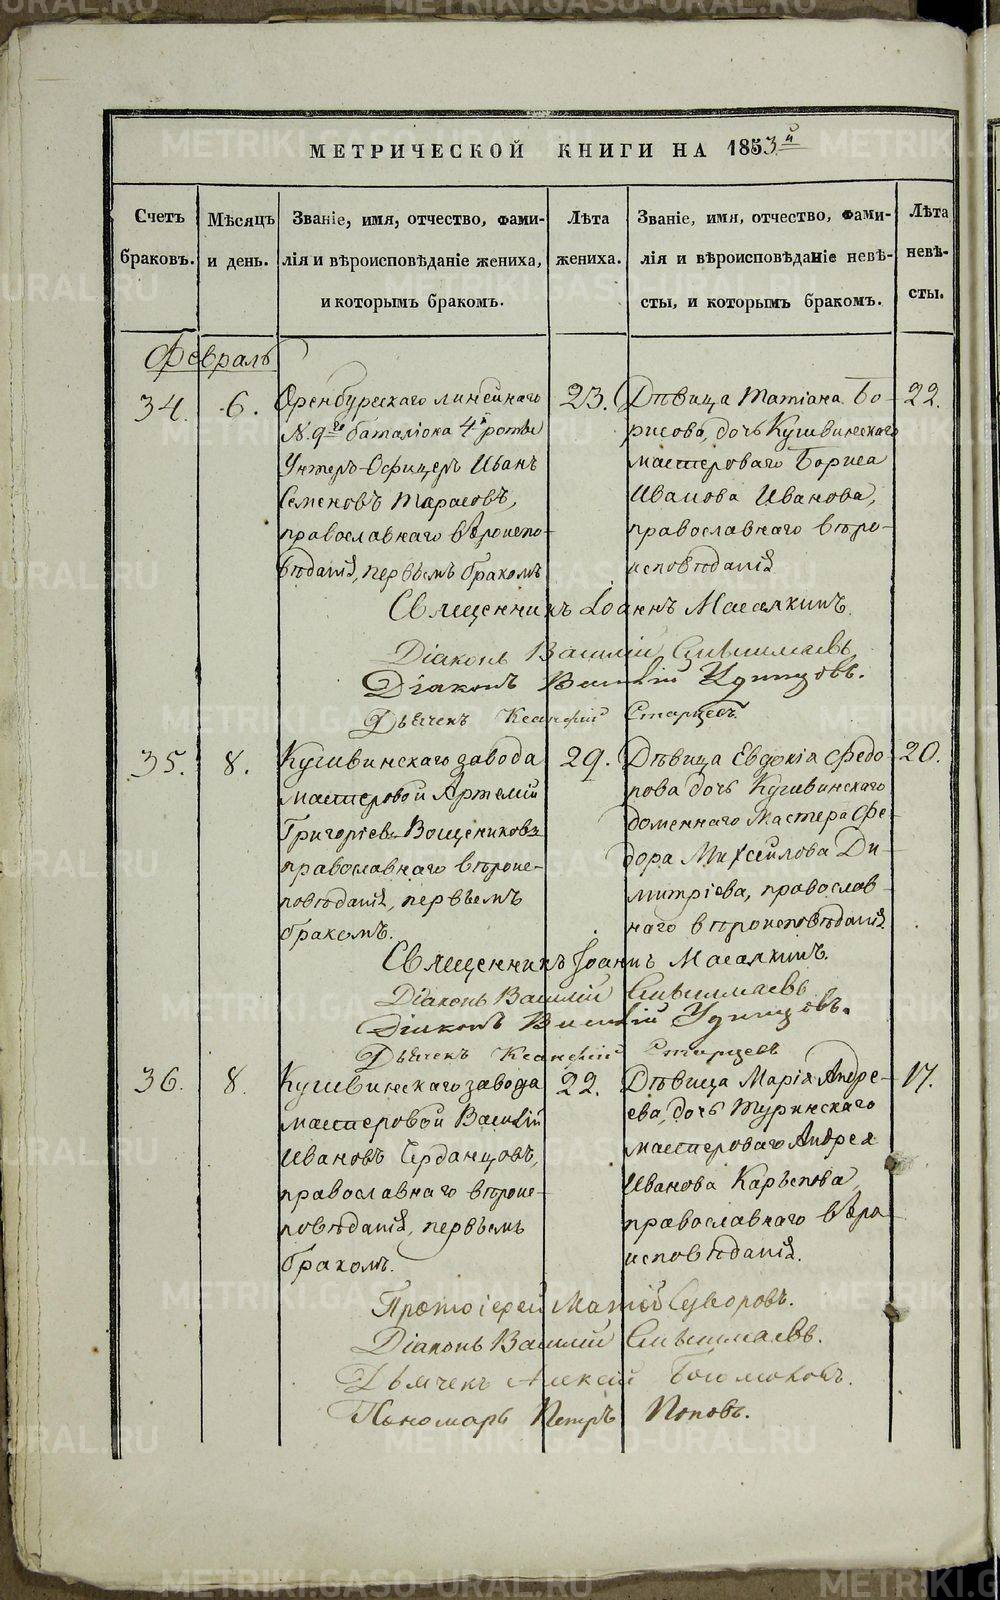 МЕТРИЧЕСКОЙ КНИГИ НА 1853й
Счетъ браковъ.
Мѣсяцъ и день.
Званіе, имя, отчество, фами-
лія и вѣроисповѣданіе жениха,
и которымъ бракомъ.
Лѣта жениха.
Званіе, имя, отчество, фами-
лія и вѣроисповѣданіе невѣ-
сты, и которымъ бракомъ.
Лѣта невѣ-
сты.
Февраль
34.
6.
Оренбурскаго линейнаго
N. 9го баталіона 4й роты
Унтеръ-Офицеръ Иванъ
Семеновъ Тарасовъ,
православнаго вѣроиспо-
вѣданія, первымъ бракомъ
23.
Дѣвица Татіана Бо-
рисова, дочь Кушвинскаго
мастероваго Бориса
Иванова Иванова,
православнаго вѣро-
исповѣданія
22.
Священникъ Іоаннъ Масалкинъ.
Діаконъ Василій
Діаконъ Василій Удинцовъ.
Дьячекъ Ксанфій Старцевъ.
35.
8.
Кушвинскаго завода
мастеровой Артемій
Григоріевъ Вощениковъ
православнаго вѣроис-
повѣданія, первымъ
бракомъ.
29.
Дѣвица Евдокія Федо-
рова дочь Кушвинскаго
доменнаго Мастера Фе-
дора Михайлова Ди-
митріева, православ-
наго вѣроисповѣданія
20.
Священникъ Іоаннъ Масалкинъ.
Діаконъ Василій
Діаконъ Василій Удинцовъ.
Дьячекъ Ксанфій Старцевъ
36.
8.
Кушвинскаго завода
мастеровой Василій
Ивановъ Черданцовъ,
православнаго вѣроис-
повѣданія, первымъ
бракомъ.
22.
Дѣвица Марія Андре-
ева, дочь Туринскаго
мастероваго Андрея
Иванова Карѣпова,
православнаго вѣро-
исповѣданія.
17.
Протоіерей Матѳій Суворовъ.
Діаконъ Василій
Дьячекъ Алексій Богомоловъ.
Пономарь Петръ Поповъ.
METRIKI.GASO-URAL.RU